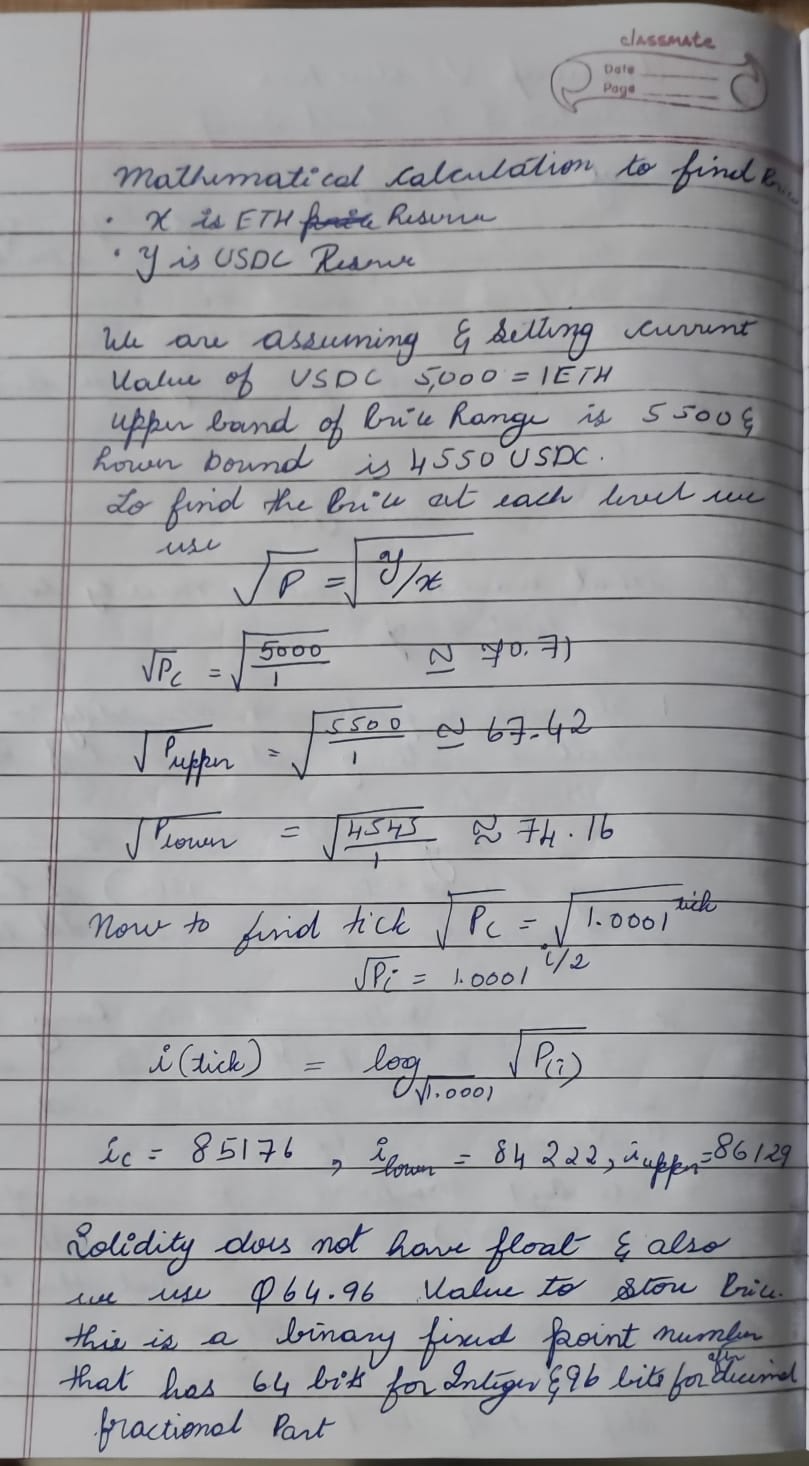 classmate
Date
Page
Mathematical Calculation to find
• x is ETH Reserve
• y is USDC Reserve
We are assuming & Setting current
Value of USDC 5,000 = 1ETH
upper band of Price Range is 5500 &
Lower bound is 4550 USDC.
To find the Price at each level we
use
√P = √y/x
√Pc = √5000/1 ≅ 70.71
√Pupper = √5500/1 ≅ 67.42
√Plower = √4545/1 ≈ 74.16
Now to find tick √Pc = √1.0001^tick
√Pi = 1.0001^i/2
i(tick) = log√1.0001 √P(i)
ic = 85176, ilower = 84222, iupper = 86129
Solidity does not have float & also
we use Q64.96 Value to Store Price.
this is a binary fixed point number
that has 64 bits for Integer & 96 bits for decimal
fractional Part